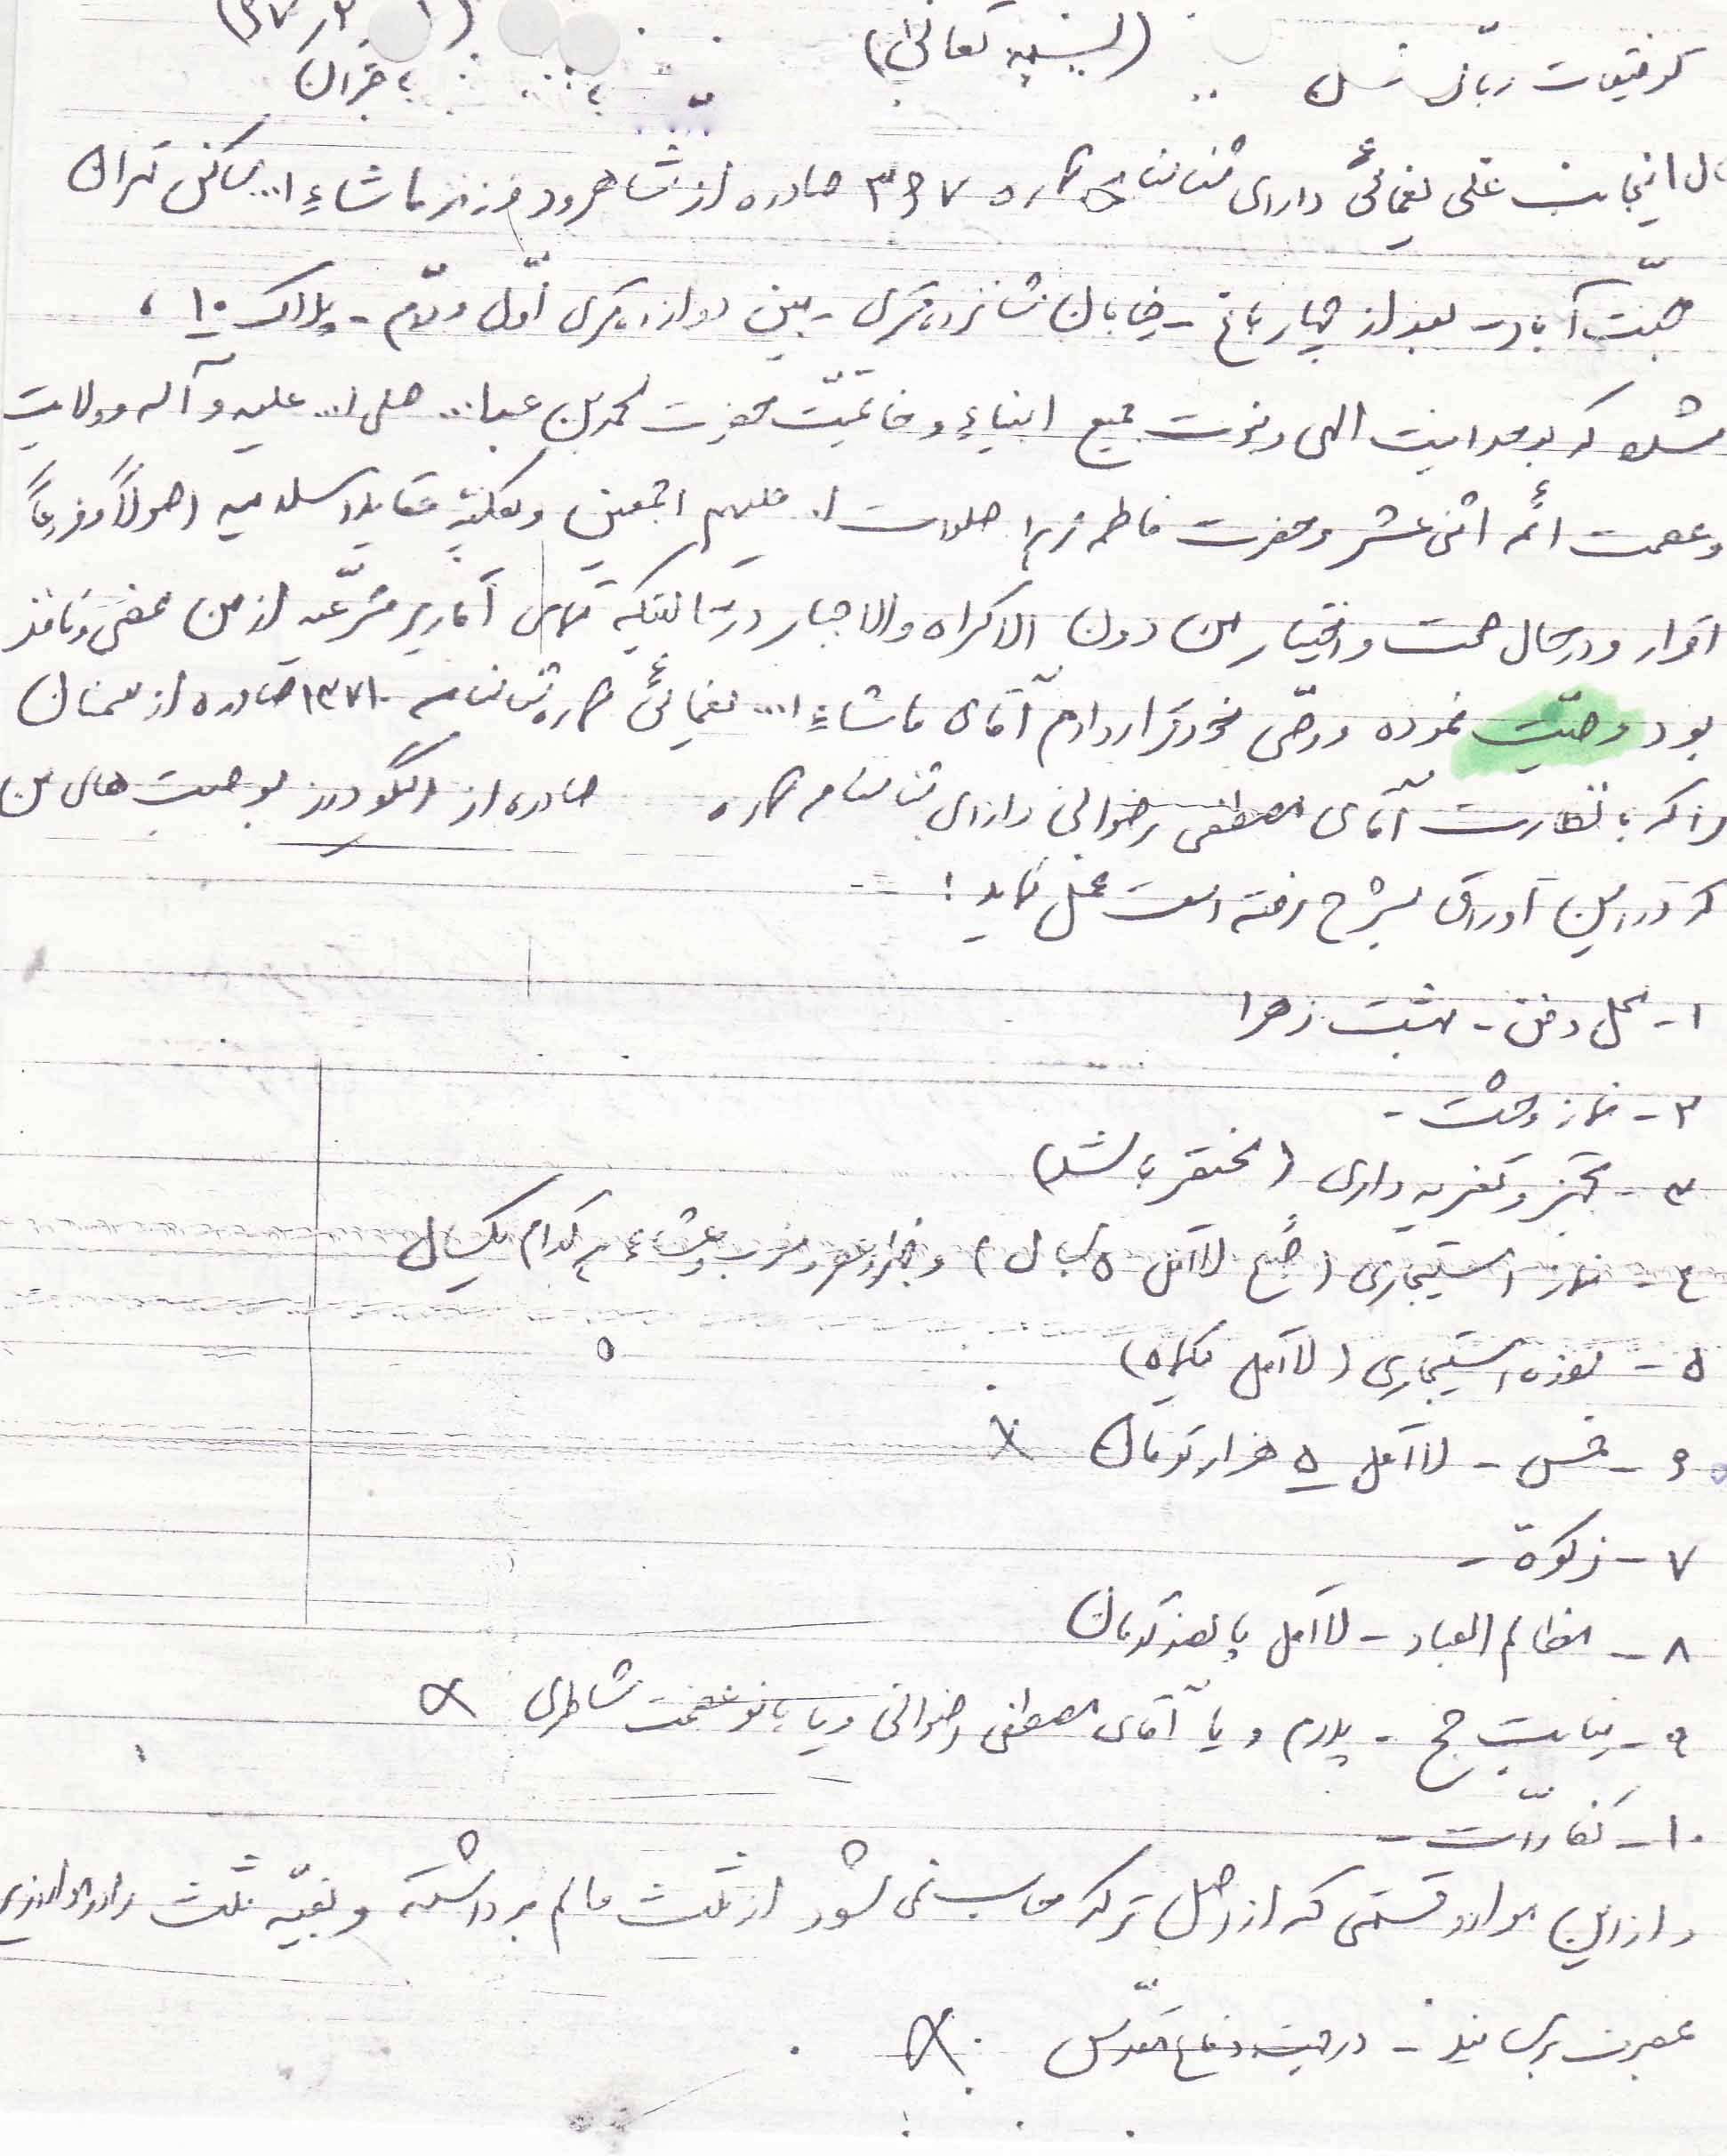 (بسمه تعالی)
توفیقات ربانی
باختران
اینجانب علی یغمائی دارای شناسنامه شماره ۳۶۷ صادره از شاهرود فرزند ماشاءا... ساکن تهران
جنت‌آباد - بعد از چهار باغ - خیابان شانزده متری - بین دوازده متری اول و دوم - پلاک ۱۰،
که بوحدانیت الهی و نبوت جمیع انبیاء و خاتمیّت حضرت محمد بن عبدا... صلی ا... علیه و آله و ولایت
و عصمت ائمه اثنی عشر و حضرت فاطمه زهرا صلوات ا.. علیهم اجمعین و بکلیه عقاید اسلامیه اصولاً و فروعاً
اقرار و در حال صحت و اختیار من دون الاکراه والاجبار در حالتیکه تمامی اقاریر شرعیه از من ممضی و نافذ
بود وصیّت نموده و وصّی خود قرار دادم آقای ماشاءا... یغمائی شماره شناسنامه ۱۳۷۱۰ صادره از سمنان
را که با نظارت آقای مصطفی رضوانی دارای شناسنامه شماره صادره از الیگودرز بوصیت‌های من
که در این اوراق بشرح رفته است عمل نماید :
۱- محل دفن - بهشت زهرا
۲- نماز وحشت -
۳- تجهیز و تعزیه داری (مختصر باشد)
۴- نماز استیجاری (صُبح لااقل ۵ سال) و ظهر و عصر و مغرب و عشاء هر کدام یکسال
۵- روزه استیجاری (لااقل یکماه)
۶- خمس - لااقل ۵ هزار تومان
۷- زکوة -
۸- مظالم العباد - لااقل پانصد تومان
۹- نیابت حج - پدرم و یا آقای مصطفی رضوانی و یا بانو عصمت شاطری
۱۰- کفارّات -
و از این موارد قسمتی که از اصل ترکه حساب نمی‌شود از ثلث مالم برداشته و بقیّه ثلث را در موارد زیر
بمصرف برسانید - در جهت دفاع مقدّس